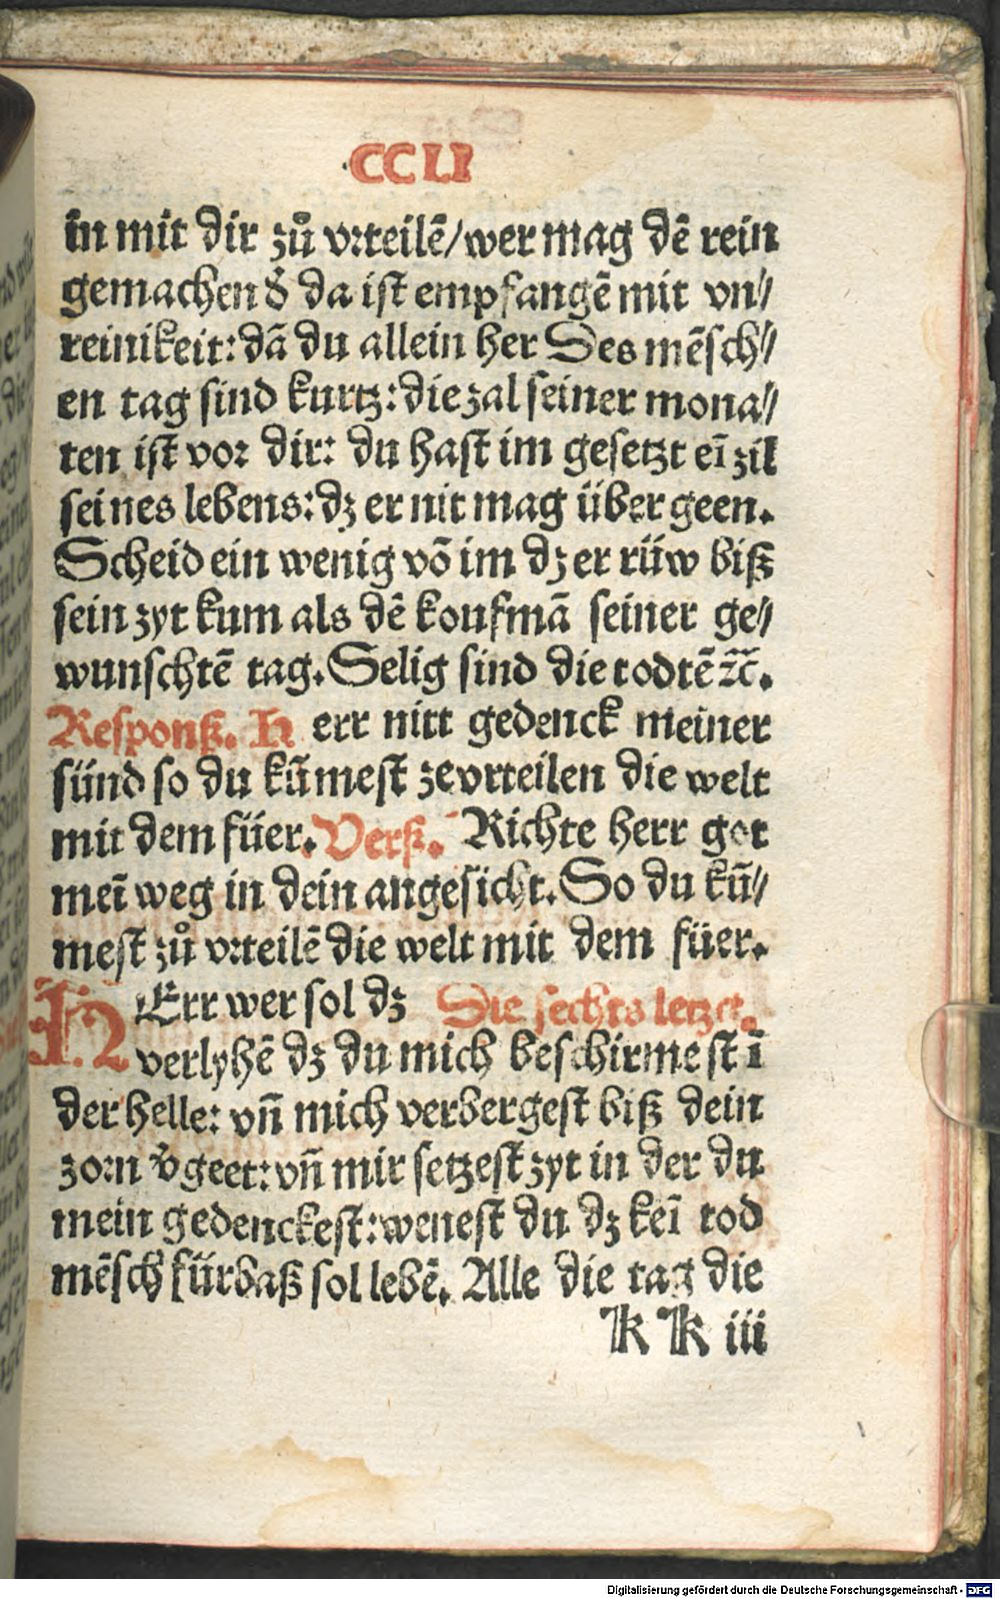 CCLI
in mit dir zuͦ vrteilē/wer mag dē rein
gemachen d̕ da ist empfangē mit vn⸗
reinikeit: dā du allein her Des mēsch⸗
en tag sind kurtz: die zal seiner mona⸗
ten ist vor dir: du hast im gesetzt eī zil
seines lebens: dz er nit mag über geen.
Scheid ein wenig vō im dz er rüw biß
sein zyt kum als dē koufmā seiner ge⸗
wunschtē tag. Selig sind die todtē ꝛc̄.
Responß. H err nitt gedenck meiner
sünd so du kūmest ze vrteilen die welt
mit dem füer. Verß. Richte herr got
meī weg in dein angesicht. So du kū⸗
mest zuͦ vrteilē die welt mit dem füer.
HErr wer sol dz Die sechts letzet.
verlyhē dz du mich beschirmest ī
der helle: vn̄ mich verbergest biß dein
zorn v̕geet: vn̄ mir setzest zyt in der du
mein gedenckest: wenest du dz keī tod
mēsch fürbaß sol lebē. Alle die tag die
kk iii
Digitalisierung gefördert durch die Deutsche Forschungsgemeinschaft - DFG